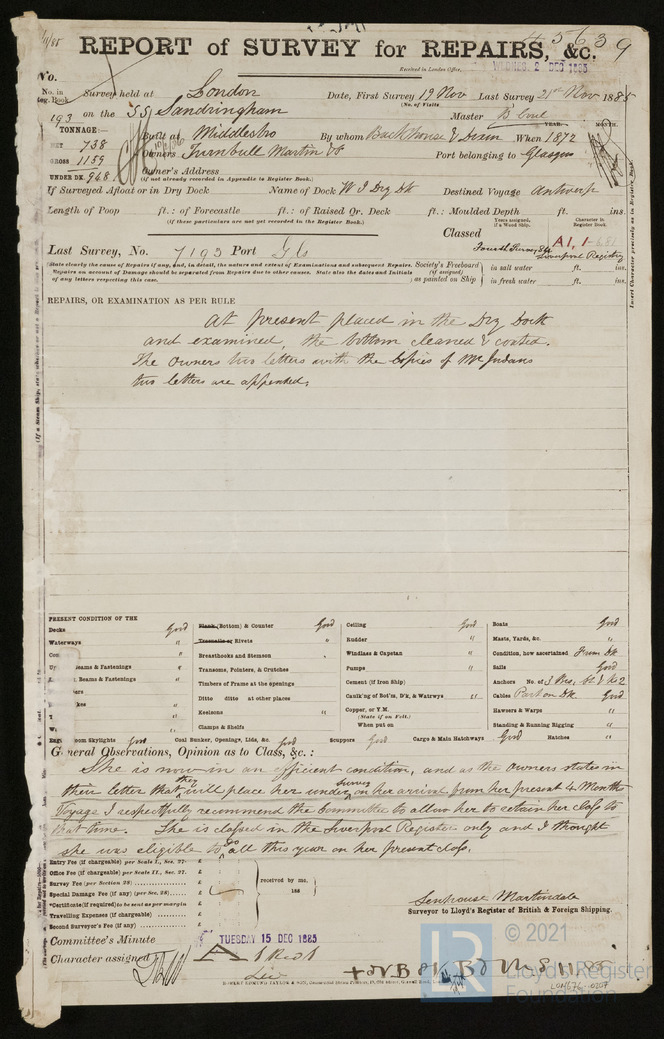 45639
REPORT of SURVEY for REPAIRS, &c.
Received in London Office, WEDNES. 2 DEC 1885
No.
No. in Reg. Book Survey held at London Date, First Survey 19 Nov Last Survey 21st Nov 1885
(No. of Visits
193 on the SS Sandringham Master
TONNAGE:— YEAR. MONTH.
NET 738 Built at Middlesbro By whom Backhouse & Dixon When 1872
GROSS 1159 Owners Turnbull Martin & Co Port belonging to Glasgow
UNDER DK. 968 Owner's Address
(if not already recorded in Appendix to Register Book.)
If Surveyed Afloat or in Dry Dock Name of Dock W I Dry Dk Destined Voyage Antwerp
Length of Poop ft.: of Forecastle ft.: of Raised Qr. Deck ft.: Moulded Depth ft. ins.
(if these particulars are not yet recorded in the Register Book.)
Years assigned, if a Wood Ship. Character in Register Book.
Classed A1, 1-
Last Survey, No. 7193 Port Gls
Liverpool Registry
(State clearly the cause of Repairs if any, and, in detail, the nature and extent of Examinations and subsequent Repairs.
Repairs on account of Damage should be separated from Repairs due to other causes. State also the dates and Initials
of any letters respecting this case.
Society's Freeboard (if assigned) as painted on Ship
in salt water ft. ins.
in fresh water ft. ins.
Insert Character precisely as in Register Book.
REPAIRS, OR EXAMINATION AS PER RULE
At present placed in the Dry Dock
and examined, the bottom cleaned & coated.
The owners two letters with the copies of Mr Jordans
two letters are appended.
PRESENT CONDITION OF THE
Decks Good
Waterways "
Beams & Fastenings "
Beams & Fastenings "
Plank (Bottom) & Counter Good
Treenails or Rivets "
Breasthooks and Stemson
Transoms, Pointers, & Crutches
Timbers of Frame at the openings
Ditto ditto at other places
Keelsons "
Clamps & Shelfs
Ceiling Good
Rudder "
Windlass & Capstan "
Pumps "
Cement (if Iron Ship) "
Caulk'ng of Bot'm, D'k, & Watrways "
Copper, or Y.M.
(State if on Felt.)
When put on
Boats Good
Masts, Yards, &c. "
Condition, how ascertained From Dk
Sails Good
Anchors No. of 3 Brs, St & K2
Cables Part on Dk. Good
Hawsers & Warps "
Standing & Running Rigging "
Engine Room Skylights Good Coal Bunker, Openings, Lids, &c. Good Scuppers Good Cargo & Main Hatchways Good Hatches "
General Observations, Opinion as to Class, &c.:
She is now in an efficient condition, and as the owners states in
their letter that they will place her under survey on her arrival from her present 4 Months
Voyage I respectfully recommend the Committee to allow her to retain her class to
that time. She is classed in the Liverpool Register only and I thought
she was eligible to go all this year on her present class.
Entry Fee (if chargeable) per Scale I., Sec. 27- £
Office Fee (if chargeable) per Scale II., Sec. 27. £
Survey Fee (per Section 28) £
Special Damage Fee (if any) (per Sec. 28) £
*Certificate (if required) to be sent as per margin
Travelling Expenses (if chargeable) £
Second Surveyor's Fee (if any) £
received by me,
188
Senhouse Martindale
Surveyor to Lloyd's Register of British & Foreign Shipping.
Committee's Minute TUESDAY 15 DEC 1885
Character assigned
ROBERT EDMUND TAYLOR & SON
© 2021
LR
Lloyd's Register
Foundation
LON676-0207